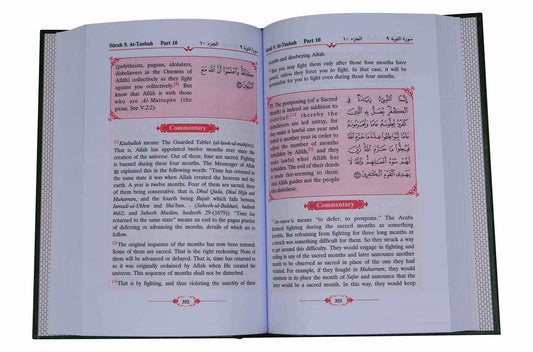 Sûrah 9. At-Taubah Part 10 الجزء ١٠ سورة التوبة ٩
(polytheists, pagans, idolaters,
disbelievers in the Oneness of
Allâh) collectively as they fight
against you collectively. But
know that Allâh is with those
who are Al-Muttaqûn (the
pious. See V.2:2).
كَآفَّةً وَاعْلَمُوا أَنَّ اللَّهَ مَعَ
الْمُتَّقِينَ
Commentary
Kitabullah means: The Guarded Tablet (al-lawh al-mahfooz).
That is, Allâh has appointed twelve months ever since the
creation of the universe. Out of these, four are sacred. Fighting
is banned during these four months. The Messenger of Allâh
explained this in the following words: "Time has returned to
the same state it was when Allâh created the heavens and the
earth. A year is twelve months. Four of them are sacred, three
of them being consecutive, that is, Dhul Qada, Dhul Hijja and
Muharram, and the fourth being Rajab which falls between
Jamad-al-Ukhra and Sha'ban. - (Saheeh al-Bukhari, hadeeth
4662; and Saheeh Muslim, hadeeth 29-(1679)). "Time has
returned to the same state" means an end to the pagan practice
of deferring or advancing the months, details of which are as
follow.
The original sequence of the months has now been restored.
Some of them are sacred. That is the right reckoning. None of
them will be advanced or delayed. That is, time has returned to
as it was originally ordained by Allâh when He created the
universe. This sequence of months shall not be disturbed.
That is by fighting, and thus violating the sanctity of these
352
Sûrah 9. At-Taubah Part 10 الجزء ١٠ سورة التوبة ٩
months and disobeying Allâh.
But you may fight them only after those four months have
passed, unless they force you to fight. In that case, it will be
permissible for you to fight even during those four months.
37. The postponing (of a Sacred
Month) is indeed an addition to
disbelief: thereby the
disbelievers are led astray, for
they make it lawful one year and
forbid it another year in order to
adjust the number of months
forbidden by Allâh, and they
make lawful what Allâh has
forbidden. The evil of their deeds
is made fair-seeming to them.
And Allâh guides not the people
who disbelieve.
إِنَّمَا النَّسِيءُ زِيَادَةٌ فِي
الْكُفْرِ يُضَلُّ بِهِ الَّذِينَ
كَفَرُوا يُحِلُّونَهُ عَامًا وَيُحَرِّمُونَهُ
عَامًا لِيُوَاطِئُوا عِدَّةَ مَا حَرَّمَ
اللَّهُ فَيُحِلُّوا مَا حَرَّمَ اللَّهُ زُيِّنَ
لَهُمْ سُوءُ أَعْمَالِهِمْ وَاللَّهُ لَا
يَهْدِي الْقَوْمَ الْكَافِرِينَ
Commentary
An-nasee'u means "to defer, to postpone." The Arabs
deemed fighting during the sacred months as something
terrible. But refraining from fighting for three long months at
a streak was something difficult for them. So they struck a way
to get around this difficulty. They would engage in fighting and
killing in any of the sacred months and later announce another
month to be observed as sacred in place of the one they had
violated. For example, if they fought in Muharram, they would
substitute in its place the month of Safar and announce that the
later would be a sacred month. In this way, they would keep
353